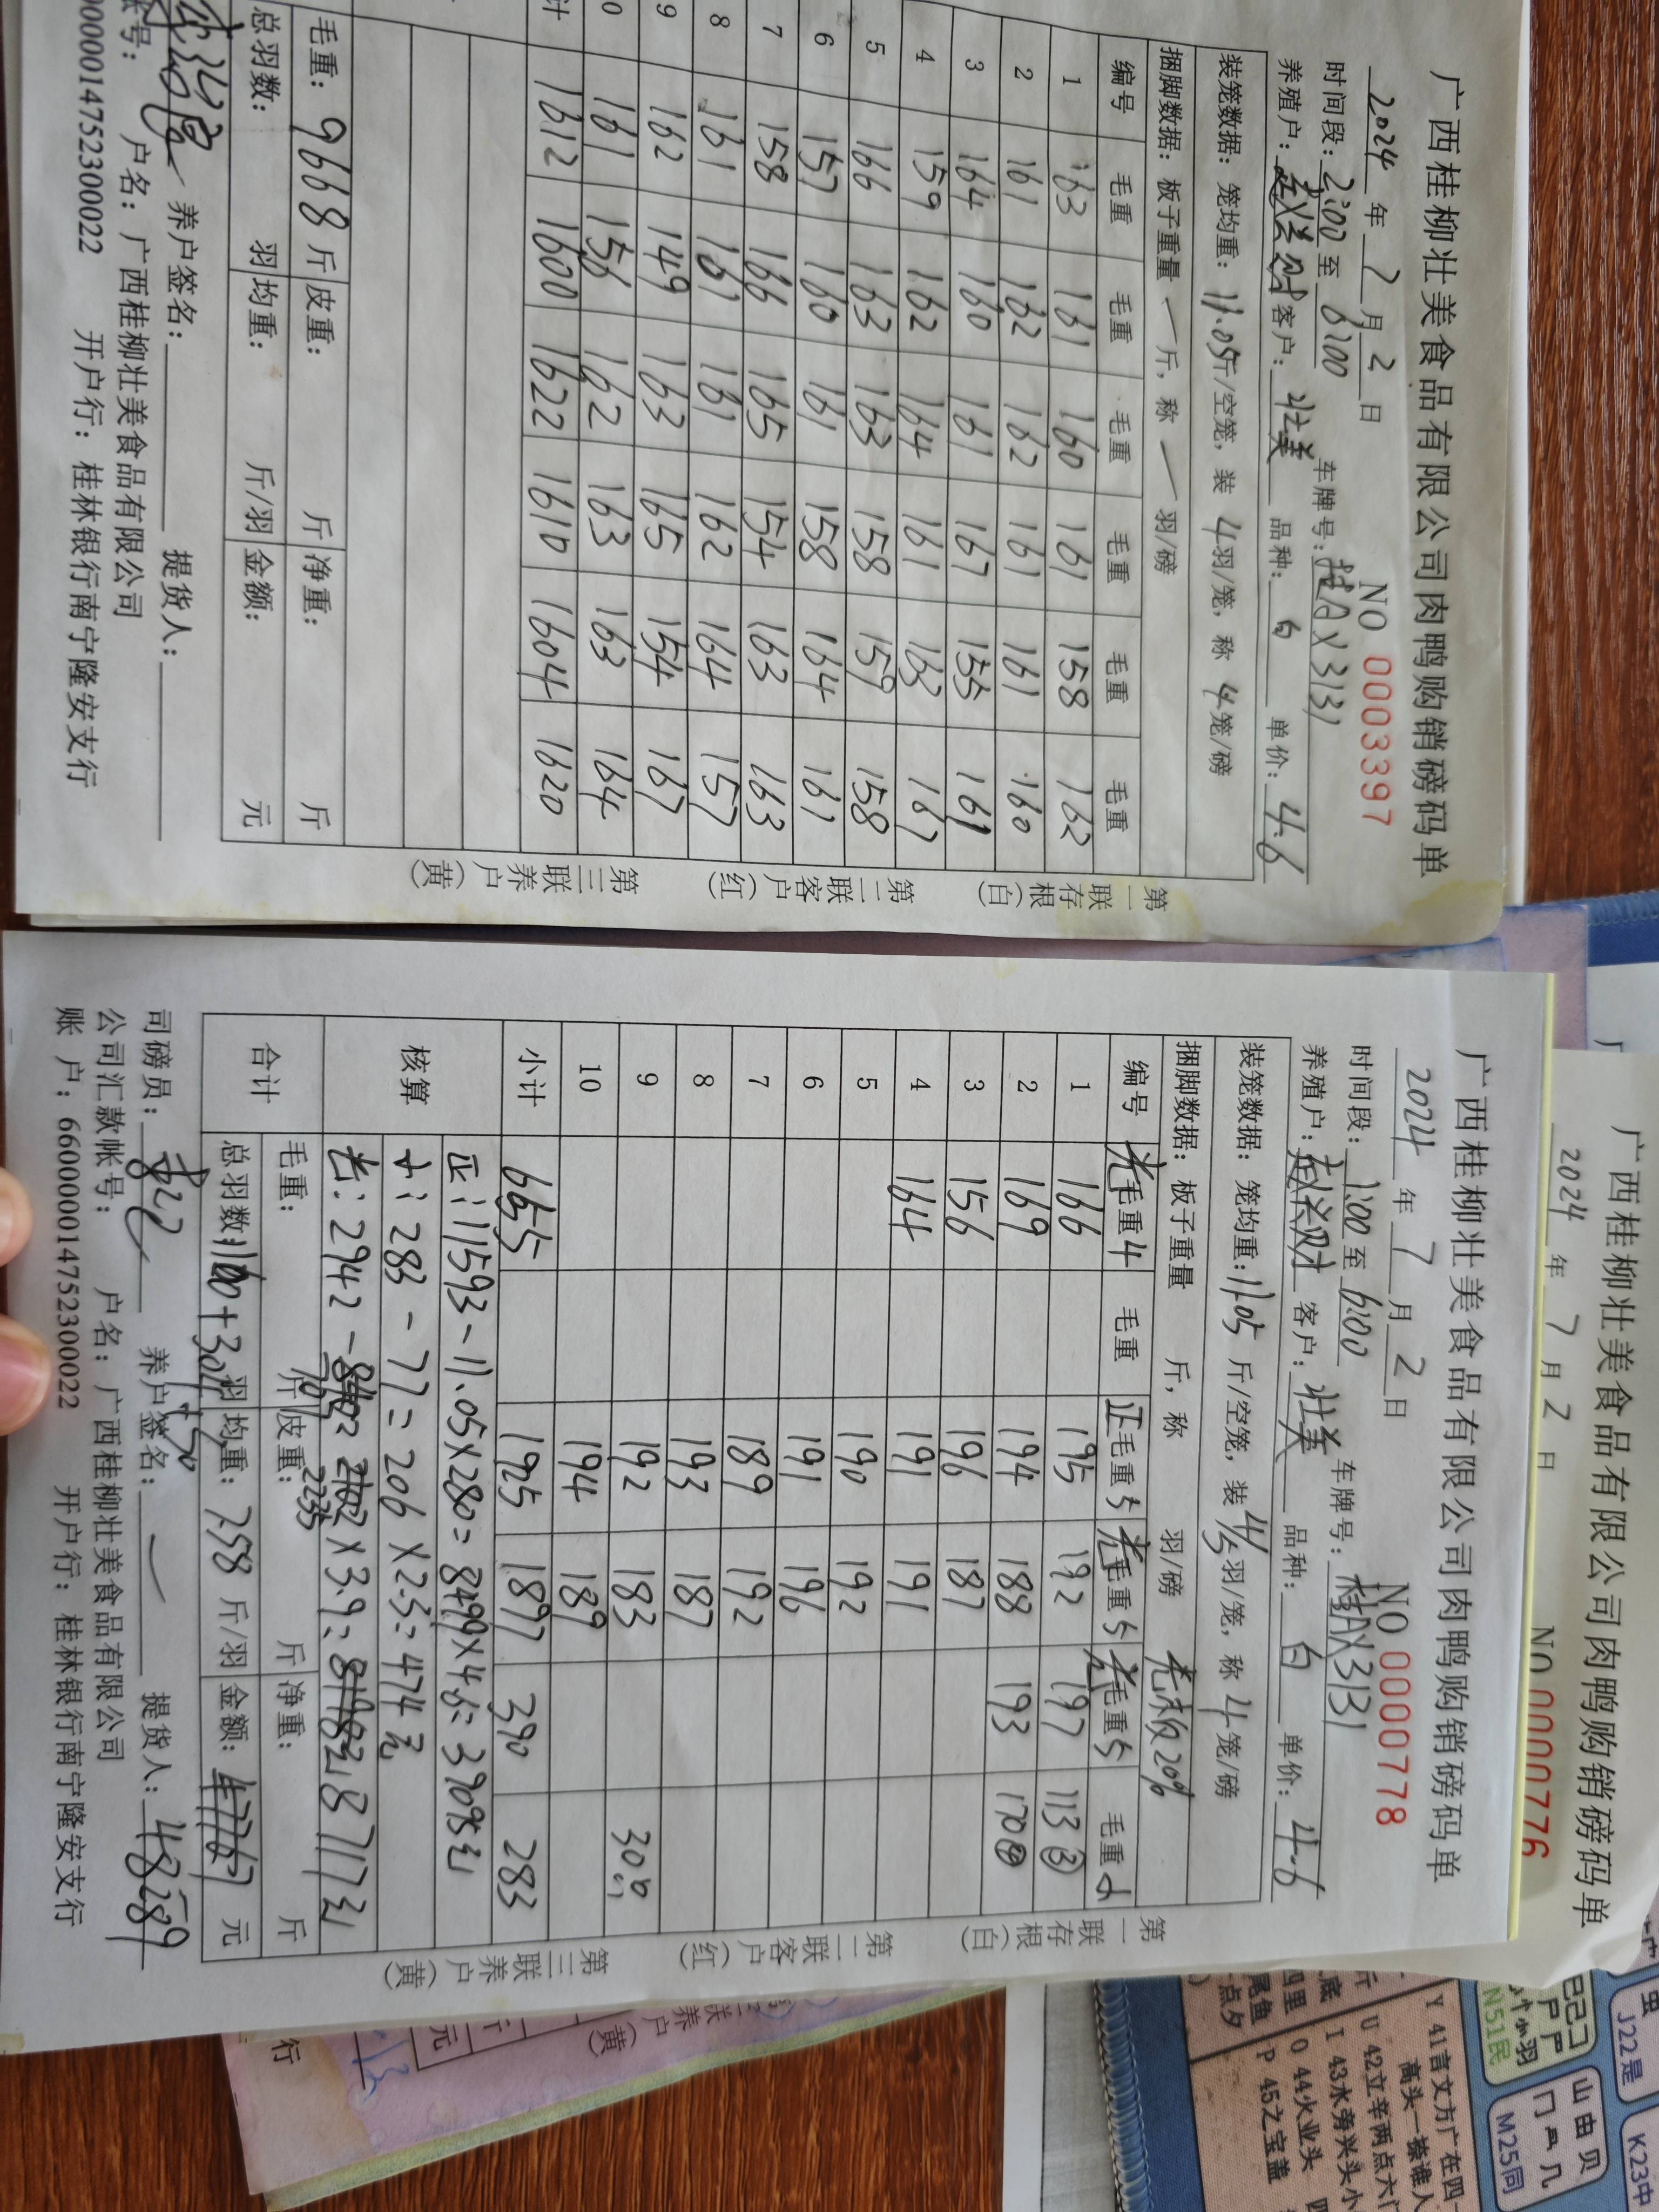 广西桂柳壮美食品有限公司肉鸭购销磅码单
NO 0003397
2024 年 7 月 2 日
时间段: 2:00 至 6:00 车牌号: 桂AX3131
养殖户: 客户: 壮美 品种: 白 单价: 4.6
装笼数据: 笼均重: 11.05斤/空笼, 装 4羽/笼, 称 4笼/磅
捆脚数据: 板子重量 — 斤, 称 — 羽/磅
编号 毛重 毛重 毛重 毛重 毛重 毛重
1 163 161 160 161 158 162
2 161 162 162 161 161 160
3 164 160 161 167 155 161
4 159 162 164 161 163 161
5 166 163 163 158 159 158
6 157 160 161 158 164 161
7 158 166 165 154 163 163
8 161 161 161 162 164 157
9 162 149 163 165 154 167
0 161 156 162 163 163 164
计 1612 1600 1622 1610 1604 1620
毛重: 9668 斤 皮重: 斤 净重: 斤
总羽数: 羽 均重: 斤/羽 金额: 元
养户签名: 提货人:
账号: 户名: 广西桂柳壮美食品有限公司
000001475230​0022 开户行: 桂林银行南宁隆安支行
第一联存根(白) 第二联客户(红) 第三联养户(黄)
广西桂柳壮美食品有限公司肉鸭购销磅码单
NO 0000778
2024 年 7 月 2 日
时间段: 1:00 至 6:00 车牌号: 桂AX3131
养殖户: 客户: 壮美 品种: 白 单价: 4.6
装笼数据: 笼均重: 11.05 斤/空笼, 装 4/5 羽/笼, 称 4 笼/磅
捆脚数据: 板子重量 斤, 称 羽/磅 壳板20%
编号 光毛重4 毛重 正毛重5 光毛重5 光毛重5 毛重
1 166 195 192 197 113③
2 169 194 188 193 170④
3 156 196 187
4 164 191 191
5 190 192
6 191 196
7 189 192
8 193 187
9 192 183
10 194 189
小计 655 1925 1897 390 283
核算
正: 11593-11.05×280=8499×4.6=39095元
小: 283-77=206×2.3=474元
光: 2942- 2235×3.9=8717元
合计
毛重: 斤 皮重: 斤 净重: 斤
总羽数: 羽 均重: 7.58 斤/羽 金额: 47767 元
司磅员: 养户签名: — 提货人: 48289
公司汇款帐号: 户名: 广西桂柳壮美食品有限公司
账 户: 660000014752300022 开户行: 桂林银行南宁隆安支行
第一联存根(白) 第二联客户(红) 第三联养户(黄)
广西桂柳壮美食品有限公司肉鸭购销磅码单
NO 0000776
2024 年 7 月 2 日
三联养户(黄)
Y 41言文方广在四
高头一捺谁人
U 42立辛两点六门
I 43水旁兴头小
O 44火业头
P 45之宝盖
N51民
M25同
J22是
K23中
山由贝